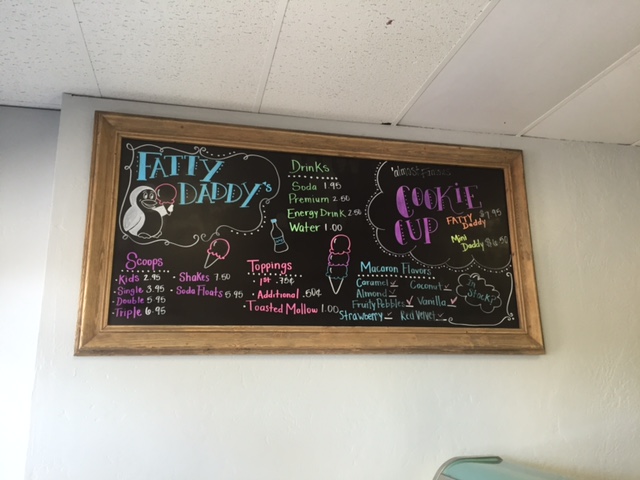 FATTY
DADDY's
Drinks
Soda 1.95
Premium 2.50
Energy Drink 2.50
Water 1.00
"almost famous"
COOKIE
CUP
FATTY
Daddy
Mini
Daddy
Scoops
Kids 2.95
Single 3.95
Double 5.95
Triple 6.95
Shakes 7.50
Soda Floats 5.95
Toppings
1st .75¢
Additional .50¢
Toasted Mallow 1.00
Macaron Flavors
Caramel Coconut
Almond
Fruity Pebbles Vanilla
Strawberry Red Velvet
in
Stock?